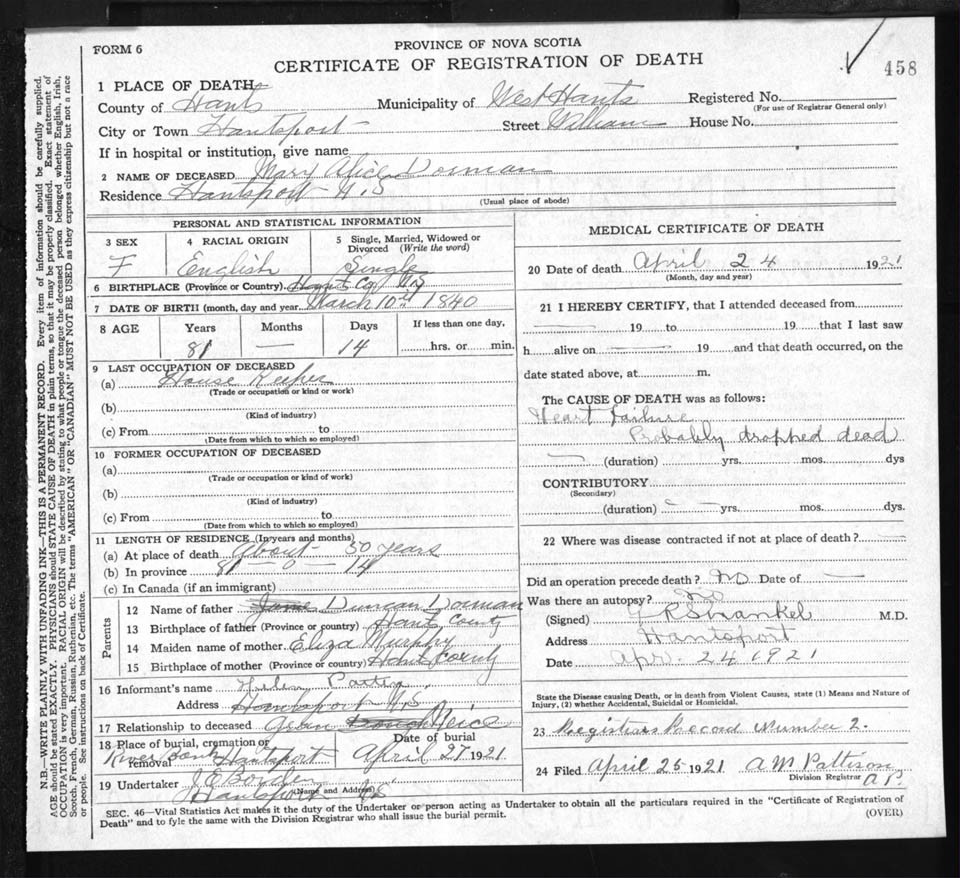 FORM 6
PROVINCE OF NOVA SCOTIA
CERTIFICATE OF REGISTRATION OF DEATH
458
1 PLACE OF DEATH
County of Hants Municipality of West Hants Registered No.
(For use of Registrar General only)
City or Town Hantsport Street William House No.
If in hospital or institution, give name
2 NAME OF DECEASED Mary Alice Dorman
Residence Hantsport N.S
(Usual place of abode)
PERSONAL AND STATISTICAL INFORMATION
3 SEX 4 RACIAL ORIGIN 5 Single, Married, Widowed or Divorced (Write the word)
F English Single
6 BIRTHPLACE (Province or Country) Hants Co NS
7 DATE OF BIRTH (month, day and year) March 10th 1840
8 AGE Years Months Days If less than one day,
81 — 14 hrs. or min.
9 LAST OCCUPATION OF DECEASED
(a) House Keeper
(Trade or occupation or kind of work)
(b)
(Kind of industry)
(c) From to
(Date from which to which so employed)
10 FORMER OCCUPATION OF DECEASED
(a)
(Trade or occupation or kind of work)
(b)
(Kind of industry)
(c) From to
(Date from which to which so employed)
11 LENGTH OF RESIDENCE (In years and months)
(a) At place of death About 50 years
(b) In province 81 - 0 - 14
(c) In Canada (if an immigrant)
Parents
12 Name of father Duncan Dorman
13 Birthplace of father (Province or country) Hants County
14 Maiden name of mother Eliza Murphy
15 Birthplace of mother (Province or country) Hants County
16 Informant's name Helen
Address Hantsport N.S
17 Relationship to deceased Gran Neice
18 Place of burial, cremation or removal River Bank Hantsport Date of burial April 27 1921
19 Undertaker J.E Borden
(Name and Address) Hantsport NS
MEDICAL CERTIFICATE OF DEATH
20 Date of death April 24 1921
(Month, day and year)
21 I HEREBY CERTIFY, that I attended deceased from
19 to 19 that I last saw
h alive on 19 and that death occurred, on the
date stated above, at m.
The CAUSE OF DEATH was as follows:
Heart Failure
Probably dropped dead
(duration) yrs. mos. dys
CONTRIBUTORY
(Secondary)
(duration) yrs. mos. dys.
22 Where was disease contracted if not at place of death?
Did an operation precede death? No Date of —
Was there an autopsy? No
(Signed) M.D.
Address Hantsport
Date Apr. 24 1921
State the Disease causing Death, or in death from Violent Causes, state (1) Means and Nature of
Injury, (2) whether Accidental, Suicidal or Homicidal.
23 Registrars Record Number 2.
24 Filed April 25 1921 A M Pattison
Division Registrar
SEC. 46—Vital Statistics Act makes it the duty of the Undertaker or person acting as Undertaker to obtain all the particulars required in the "Certificate of Registration of
Death" and to fyle the same with the Division Registrar who shall issue the burial permit.
(OVER)
N.B.—WRITE PLAINLY WITH UNFADING INK—THIS IS A PERMANENT RECORD. Every item of information should be carefully supplied.
AGE should be stated EXACTLY. PHYSICIANS should STATE CAUSE OF DEATH in plain terms, so that it may be properly classified. Exact statement of
OCCUPATION is very important. RACIAL ORIGIN will be described by stating to what people or tongue the deceased person belonged whether English, Irish,
Scotch, French, German, Russian, Ruthenian, etc. The terms "AMERICAN" OR "CANADIAN" MUST NOT BE USED as they express citizenship but not a race
or people. See instructions on back of Certificate.